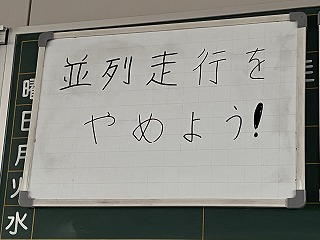 並列走行を
やめよう!
曜
日
月
火
水